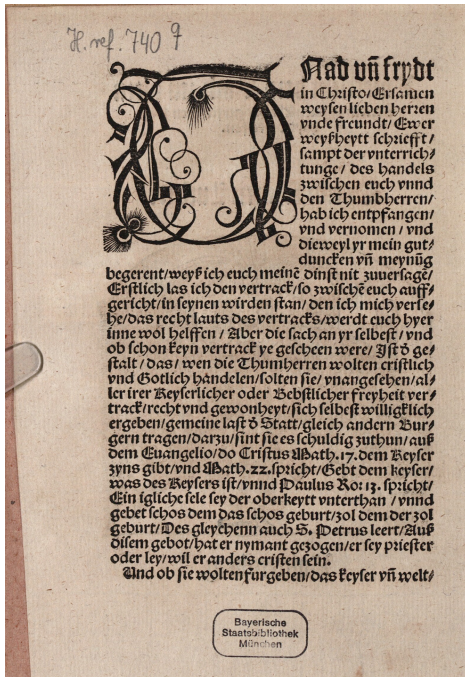 H. ref. 740 q
GNad vñ frydt
in Christo/Ersamen
weysen lieben herren
vnde freundt/Ewer
weyßheytt schriefft/
sampt der vnterrich/
tunge/des handels
zwischen euch vnnd
den Thumbherren/
hab ich entpfangen/
vnd vernomen/vnd
dieweyl yr mein gut/
duncken vñ meynũg
begerent/weyß ich euch meinẽ dinst nit zuuersage/
Erstlich las ich den vertrack/so zwischẽ euch auff/
gericht/in seynen wirden stan/den ich mich verse/
he/das recht lauts des vertracks/werdt euch hyer
inne wol helffen/Aber die sach an yr selbest/vnd
ob schon keyn vertrack ye gescheen were/Jst õ ge/
stalt/das/wen die Thumherren wolten cristlich
vnd Gotlich handelen/solten sie/vnangesehen/al/
ler irer Keyserlicher oder Bebstlicher freyheit ver/
track/recht vnd gewonheyt/sich selbest willigklich
ergeben/gemeine last õ Statt/gleich andern Bur/
gern tragen/darzu/sint sie es schuldig zuthun/auß
dem Euangelio/do Cristus Math.17.dem Keyser
zyns gibt/vnd Math.22.spricht/Gebt dem keyser/
was des Keysers ist/vnnd Paulus Ro:13.spricht/
Ein igliche sele sey der oberkeytt vnterthan/vnnd
gebet schos dem das schos geburt/zol dem der zol
geburt/Des gleychenn auch S.Petrus leert/Auß
disem gebot/hat er nymant gezogen/er sey priester
oder ley/wil er anders cristen sein.
Und ob sie wolten furgeben/das keyser vñ welt/
Bayerische
Staatsbibliothek
München